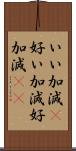 いい加減
好い加減好
加減